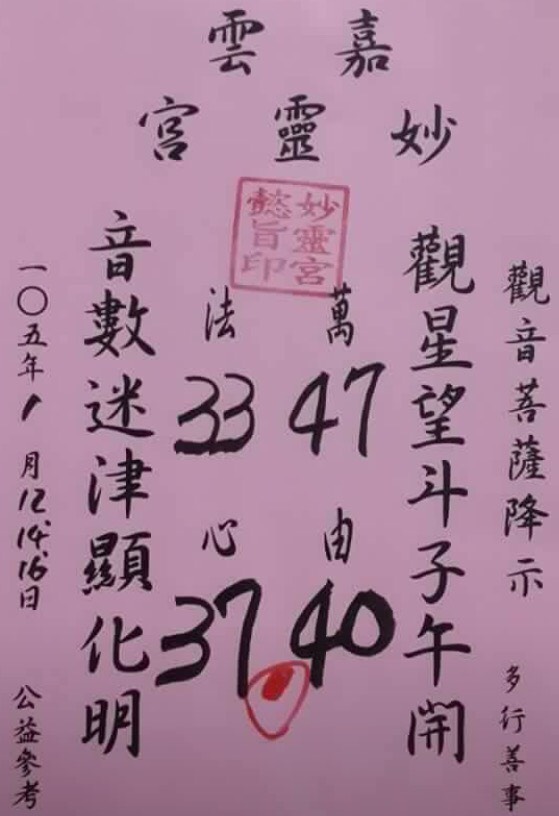 嘉雲
妙靈宮
妙靈宮
懿旨印
觀音菩薩降示 多行善事
觀星望斗子午開
萬 47 由 40
法 33 心 37
音數迷津顯化明
一〇五年1月12.14.16日 公益參考